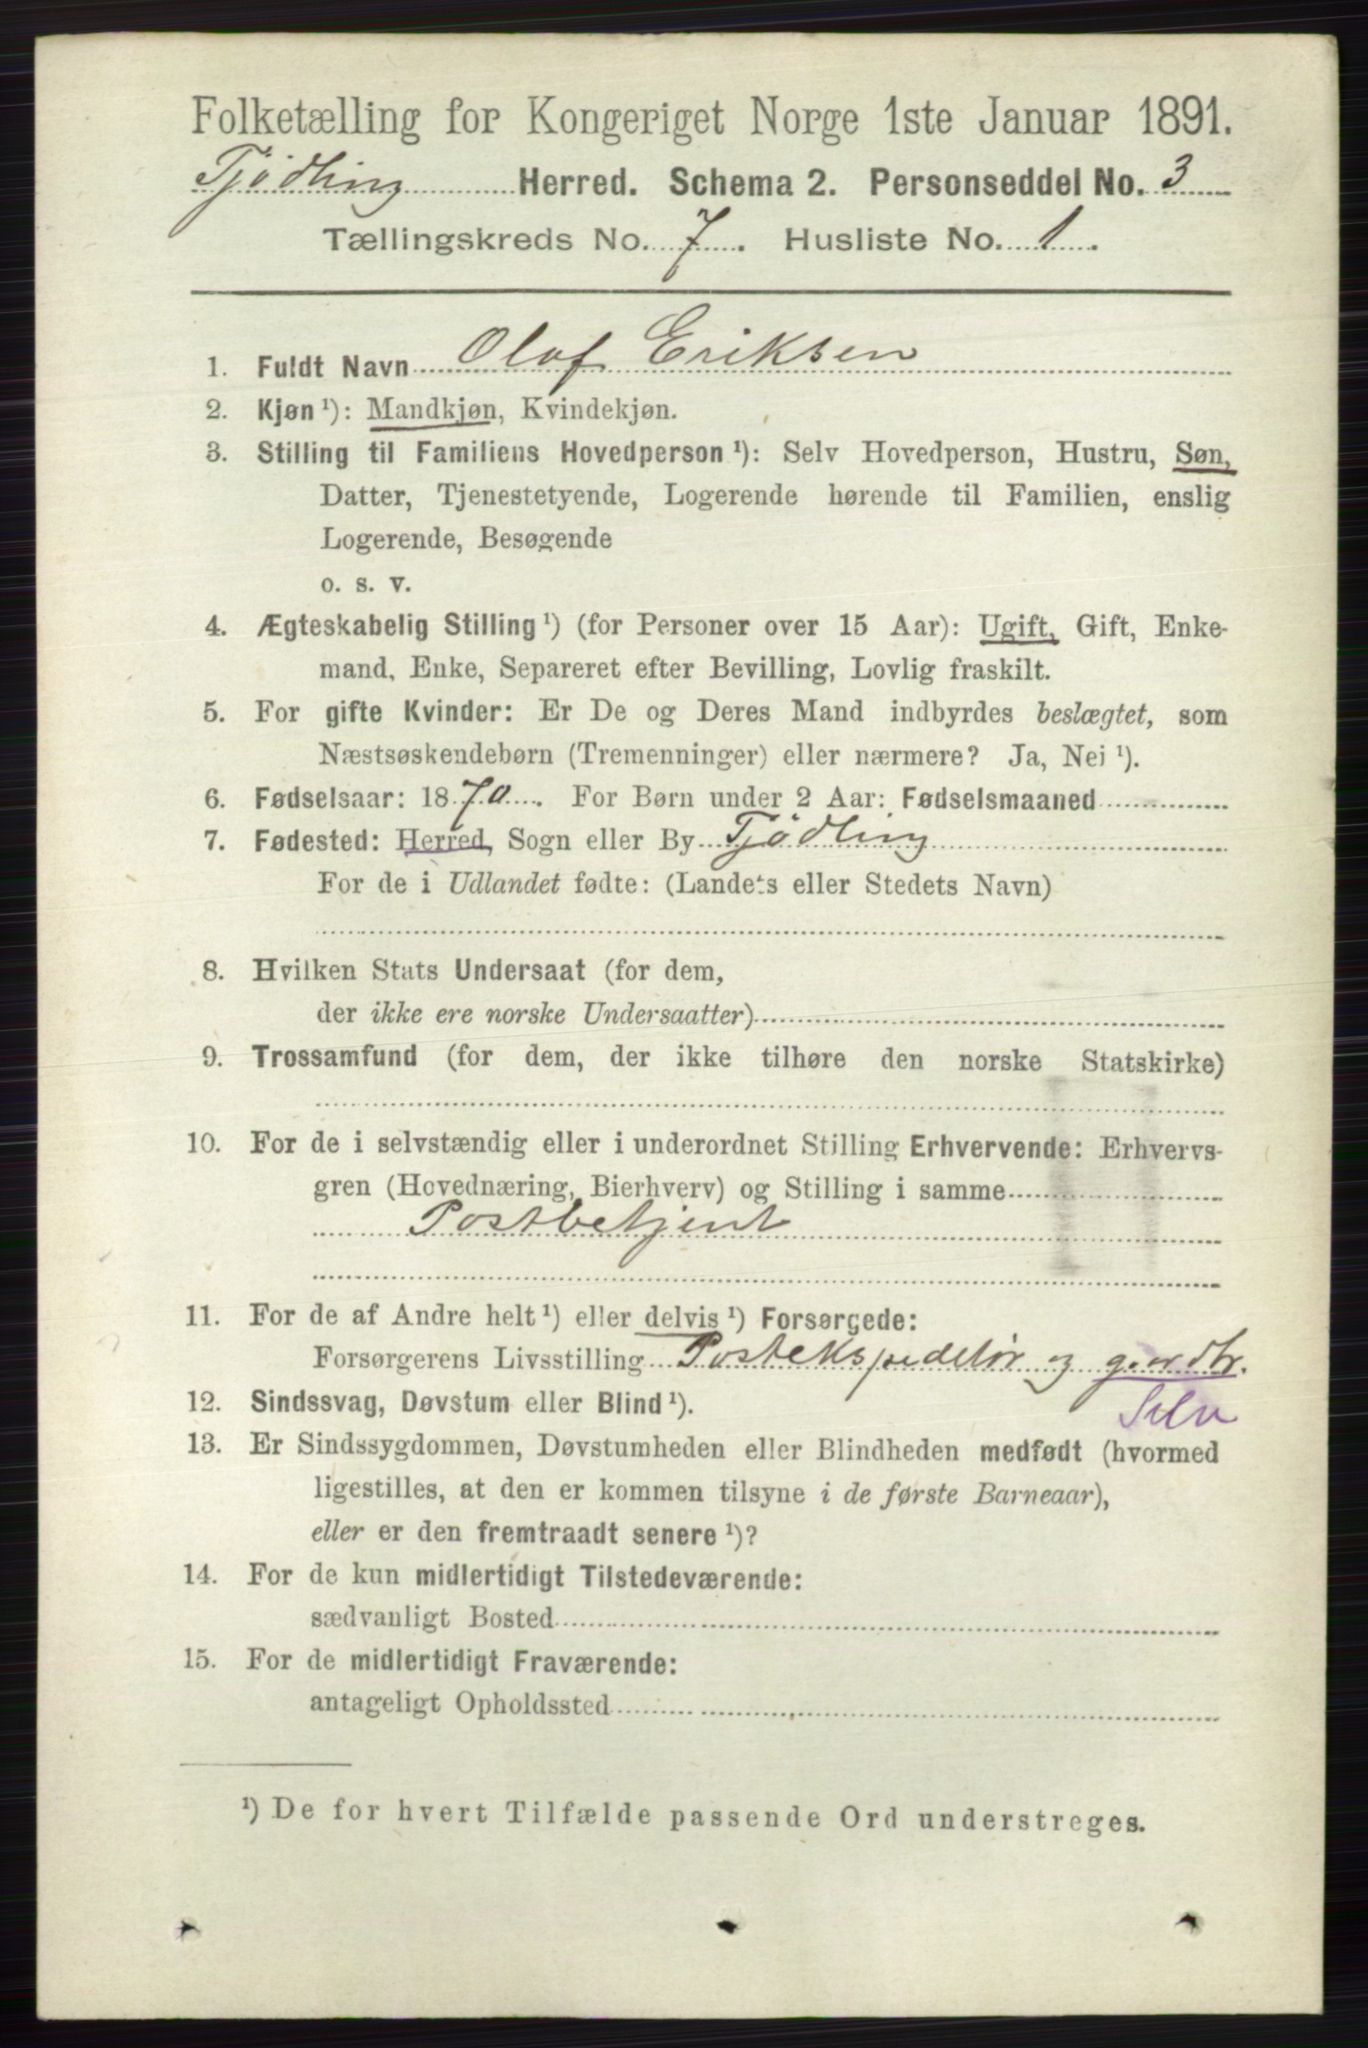 Folketælling for Kongeriget Norge 1ste Januar 1891.
Tjödling Herred. Schema 2. Personseddel No. 3
Tællingskreds No. 7. Husliste No. 1.
1. Fuldt Navn Olaf Eriksen
2. Kjøn ¹): Mandkjøn, Kvindekjøn.
3. Stilling til Familiens Hovedperson ¹): Selv Hovedperson, Hustru, Søn,
Datter, Tjenestetyende, Logerende hørende til Familien, enslig
Logerende, Besøgende
o. s. v.
4. Ægteskabelig Stilling ¹) (for Personer over 15 Aar): Ugift, Gift, Enke-
mand, Enke, Separeret efter Bevilling, Lovlig fraskilt.
5. For gifte Kvinder: Er De og Deres Mand indbyrdes beslægtet, som
Næstsøskendebørn (Tremenninger) eller nærmere? Ja, Nei ¹).
6. Fødselsaar: 1870. For Børn under 2 Aar: Fødselsmaaned
7. Fødested: Herred, Sogn eller By Tjödling
For de i Udlandet fødte: (Landets eller Stedets Navn)
8. Hvilken Stats Undersaat (for dem,
der ikke ere norske Undersaatter)
9. Trossamfund (for dem, der ikke tilhøre den norske Statskirke)
10. For de i selvstændig eller i underordnet Stilling Erhvervende: Erhvervs-
gren (Hovednæring, Bierhverv) og Stilling i samme
Postbetjent
11. For de af Andre helt ¹) eller delvis ¹) Forsørgede:
Forsørgerens Livsstilling Postekspeditör og gaardbr.
Selv
12. Sindssvag, Døvstum eller Blind ¹).
13. Er Sindssygdommen, Døvstumheden eller Blindheden medfødt (hvormed
ligestilles, at den er kommen tilsyne i de første Barneaar),
eller er den fremtraadt senere ¹)?
14. For de kun midlertidigt Tilstedeværende:
sædvanligt Bosted
15. For de midlertidigt Fraværende:
antageligt Opholdssted
¹) De for hvert Tilfælde passende Ord understreges.